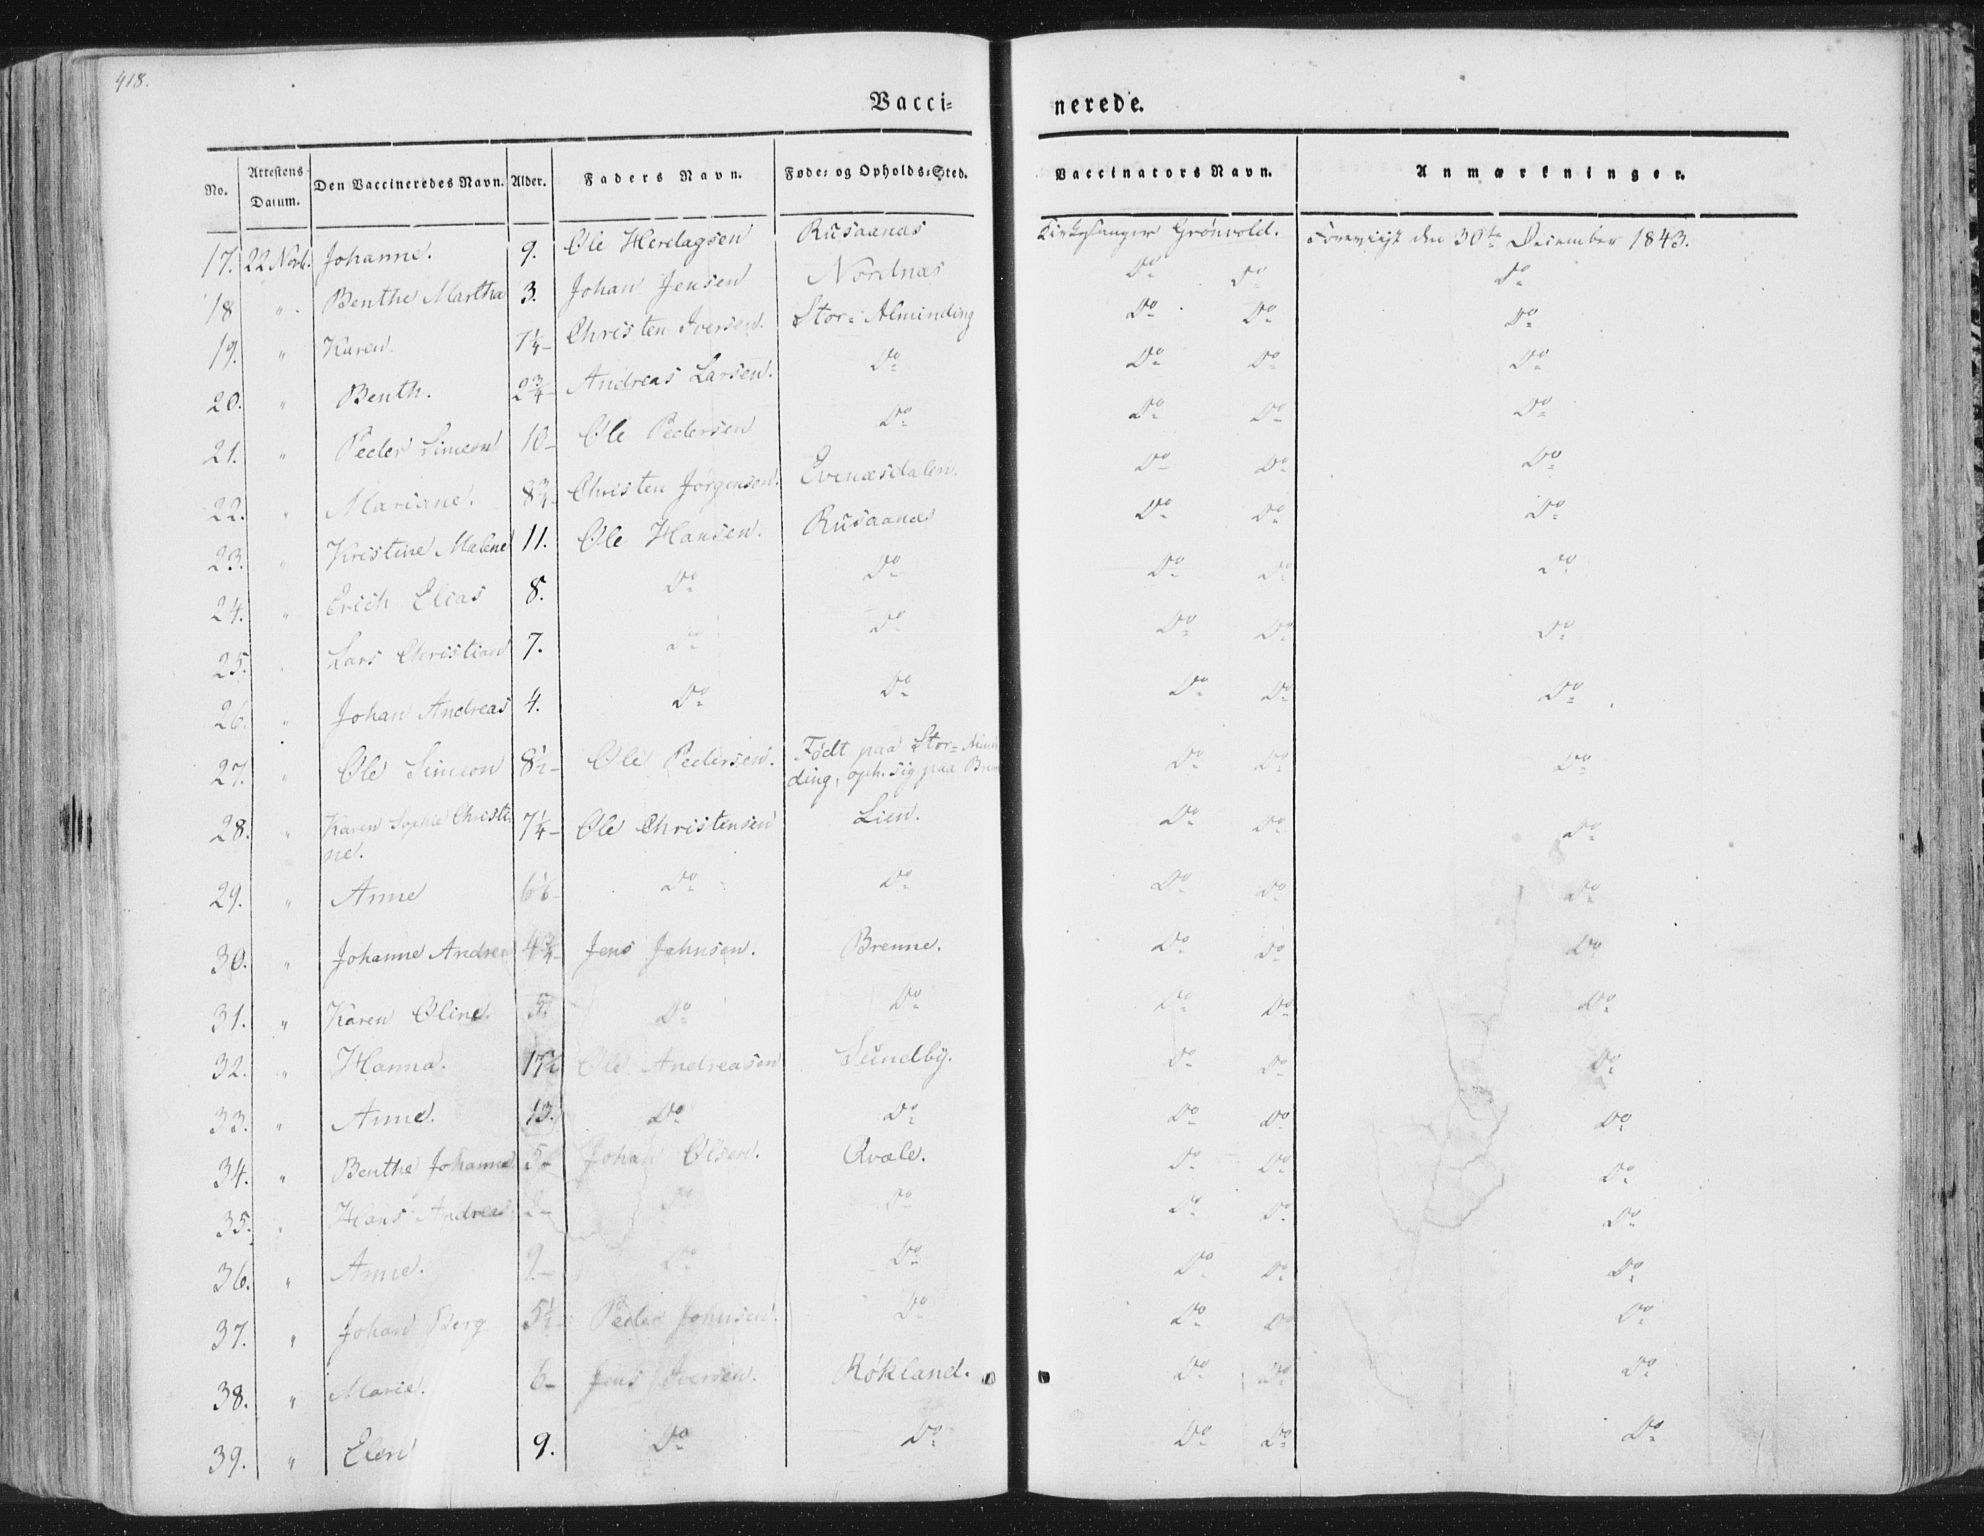 418.
Vacci=nerede.
No. | Attestens Datum. | Den Vaccineredes Navn. | Alder. | Faders Navn. | Føde= og Opholds=Sted. | Vaccinators Navn. | Anmærkninger.
17. | 22 Novb. | Johanne. | 9. | Ole Herdagsen | Rusaanæs | Kirkesanger Grönvold. | Foreviist den 30te December 1843.
18 | " | Benthe Martha | 3. | Johan Jensen | Nordnæs | Do Do | Do
19. | " | Karen. | 7 1/4 | Christen Iversen. | Stor=Alminding | Do Do | Do
20. | " | Benth. | 2 3/4 | Andreas Larsen. | Do | Do Do | Do
21. | " | Peder Simeon | 10 | Ole Pedersen | Do | Do Do | Do
22. | " | Mariane. | 8 3/4 | Christen Jørgensen. | Evenæsdalen. | Do Do | Do
23. | " | Kristine Malene | 11. | Ole Hansen. | Rusaanæs | Do Do | Do
24. | " | Erich Elias | 8. | Do | Do | Do Do | Do
25. | " | Lars Christian | 7. | Do | Do | Do Do | Do
26. | " | Johan Andreas | 4. | Do | Do | Do Do | Do
27. | " | Ole Simeon | 8 1/2 | Ole Pedersen. | Født paa Stor=Almin
ding, oph. sig paa Bren | Do Do | Do
28. | " | Karen Sophie Christi
ne. | 7 1/4 | Ole Christensen | Lien. | Do Do | Do
29. | " | Anne | 6 1/6 | Do | Do | Do Do | Do
30. | " | Johanne Andrea | 4 3/4 | Jens Jahnsen. | Brenne. | Do Do | Do
31. | " | Karen Oline. | | Do | Do | Do Do | Do
32. | " | Hanna. | 17 1/2 | Ole Andreasen | Sundby. | Do Do | Do
33. | " | Anne. | 13. | Do | Do | Do Do | Do
34. | " | Benthe Johanne | 5 | Johan Olsen. | Qvæle. | Do Do | Do
35. | " | Hans Andreas | 2 | Do | Do | Do Do | Do
36. | " | Anne. | 9. | Do | Do | Do Do | Do
37. | " | Johan Berg | 5 1/2 | Peder Johnsen. | Do | Do Do | Do
38. | " | Marie. | 6 | Jens Iversen. | Røkland. | Do Do | Do
39. | " | Elen | 9. | Do | Do | Do Do | Do